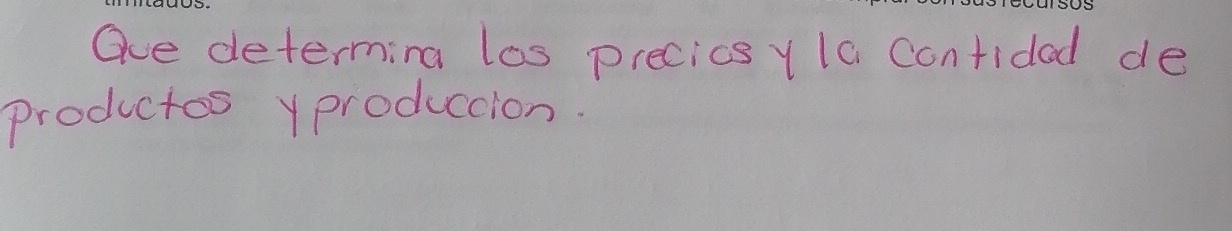 limitados.
sus recursos
Que determina los precios y la cantidad de
productos y produccion.